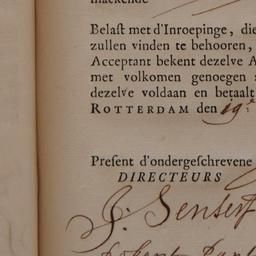 mackende
Belaſt met d'Inroepinge, die
zullen vinden te behooren,
Acceptant bekent dezelve A
met volkomen genoegen
dezelve voldaan en betaalt
ROTTERDAM den 19e
Preſent d'ondergeſchrevene
DIRECTEURS
J. Senserf